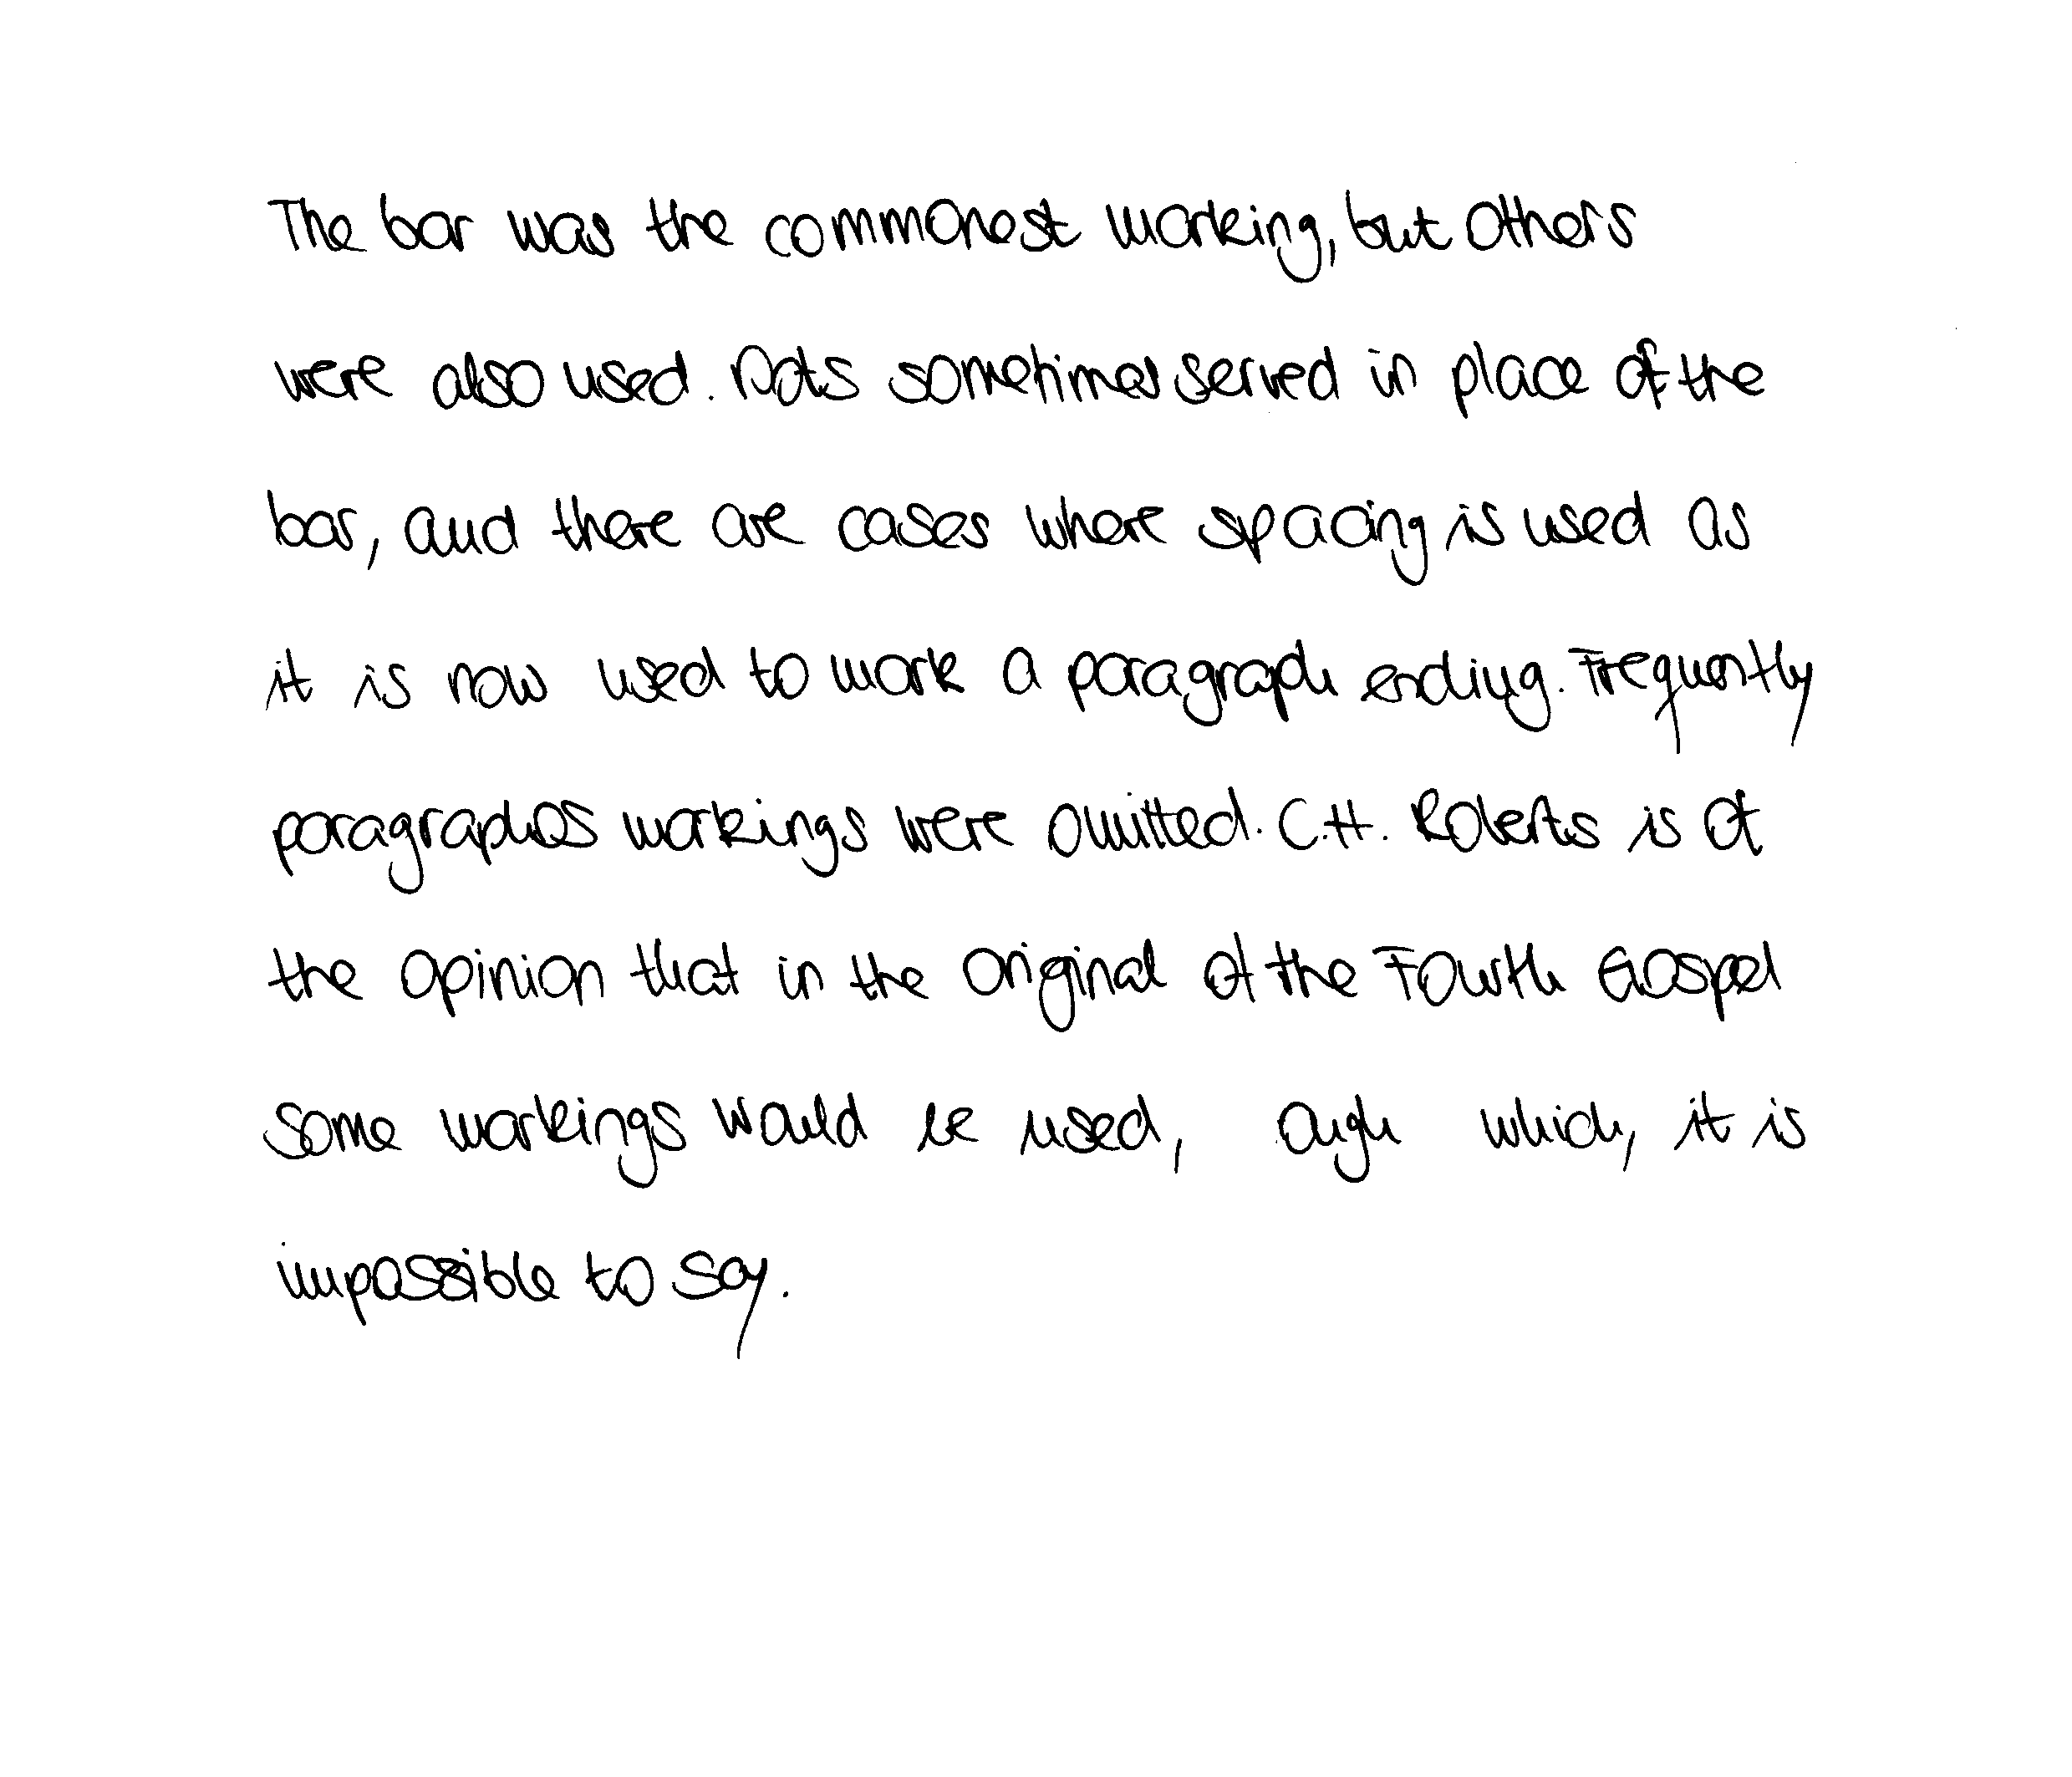 The bar was the commonest marking, but others
were also used. Dots sometimes served in place of the
bar, and there are cases where spacing is used as
it is now used to mark a paragraph ending. Frequently
paragraphos markings were omitted. C.H. Roberts is of
the opinion that in the original of the Fourth Gospel
some markings would be used, which, it is
impossible to say.